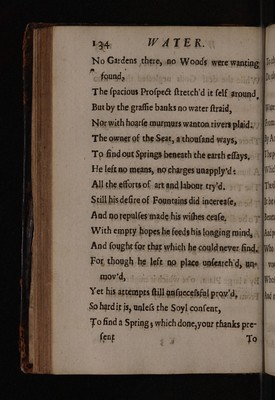 134 WATER.
No Gardens there, no Woods were wanting
found,
The ſpacious Proſpect ſtretch'd it ſelf around,
But by the graſſie banks no water ſtraid,
Nor with hoarſe murmurs wanton rivers plaid.
The owner of the Seat, a thouſand ways,
To find out Springs beneath the earth eſſays,
He left no means, no charges unapply'd:
All the efforts of art end labour try'd.
Still his deſire of Fountains did intereaſe,
And no repulſes made his wiſhes ceaſe,
With empty hopes he feeds his longing mind,
And ſought for that which he could never find.
For though he left no place unſearch'd, un-
mov'd,
Yet his attempts ſtill unſucceſsful prov'd,
So hard it is, unleſs the Soyl conſent,
To find a Spring; which done, your thanks pre-
ſent
To